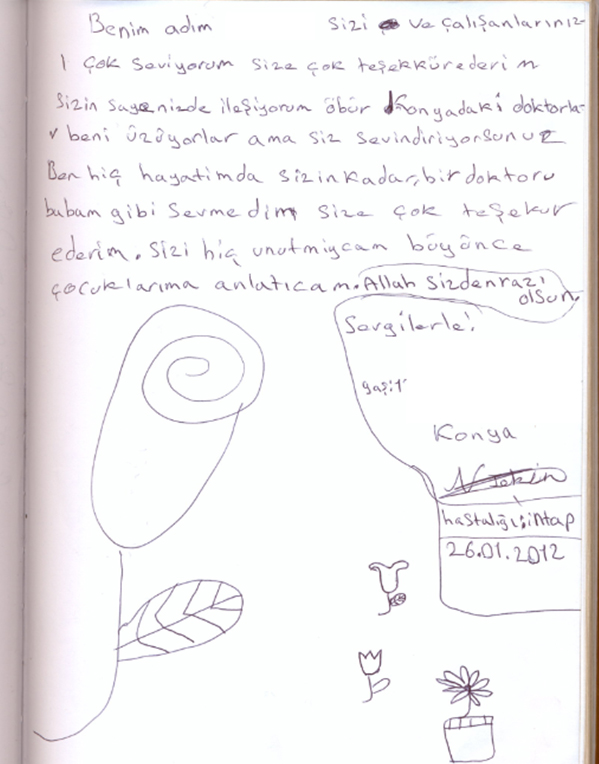 Benim adım sizi ve çalışanlarınız-
ı çok seviyorum size çok teşekkürederim
sizin sayenizde ileşiyorum öbür Konyadaki doktorla-
r beni üzüyorlar ama siz sevindiriyorsunuz
Ben hiç hayatimda sizinkadar, bir doktoru
babam gibi sevmedim size çok teşekur
ederim. sizi hiç unutmıycam böyünce
çocuklarıma anlatıcam. Allah sizdenrazı
olsun.
Sevgilerle!
yaşıt
Konya
hastalığı: intap
26.01.2012